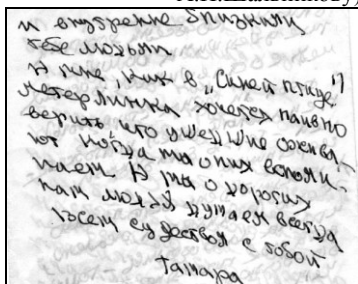 А.П.Шальникову)
и внутренне близкими
тебе людьми
А мне, как в „Синей птице"
Метерлинка хочется наивно
верить что ушедшие ожива-
ют когда мы о них вспоми-
наем А мы о дорогих
нам людях думаем всегда
всем с тобой
Тамара